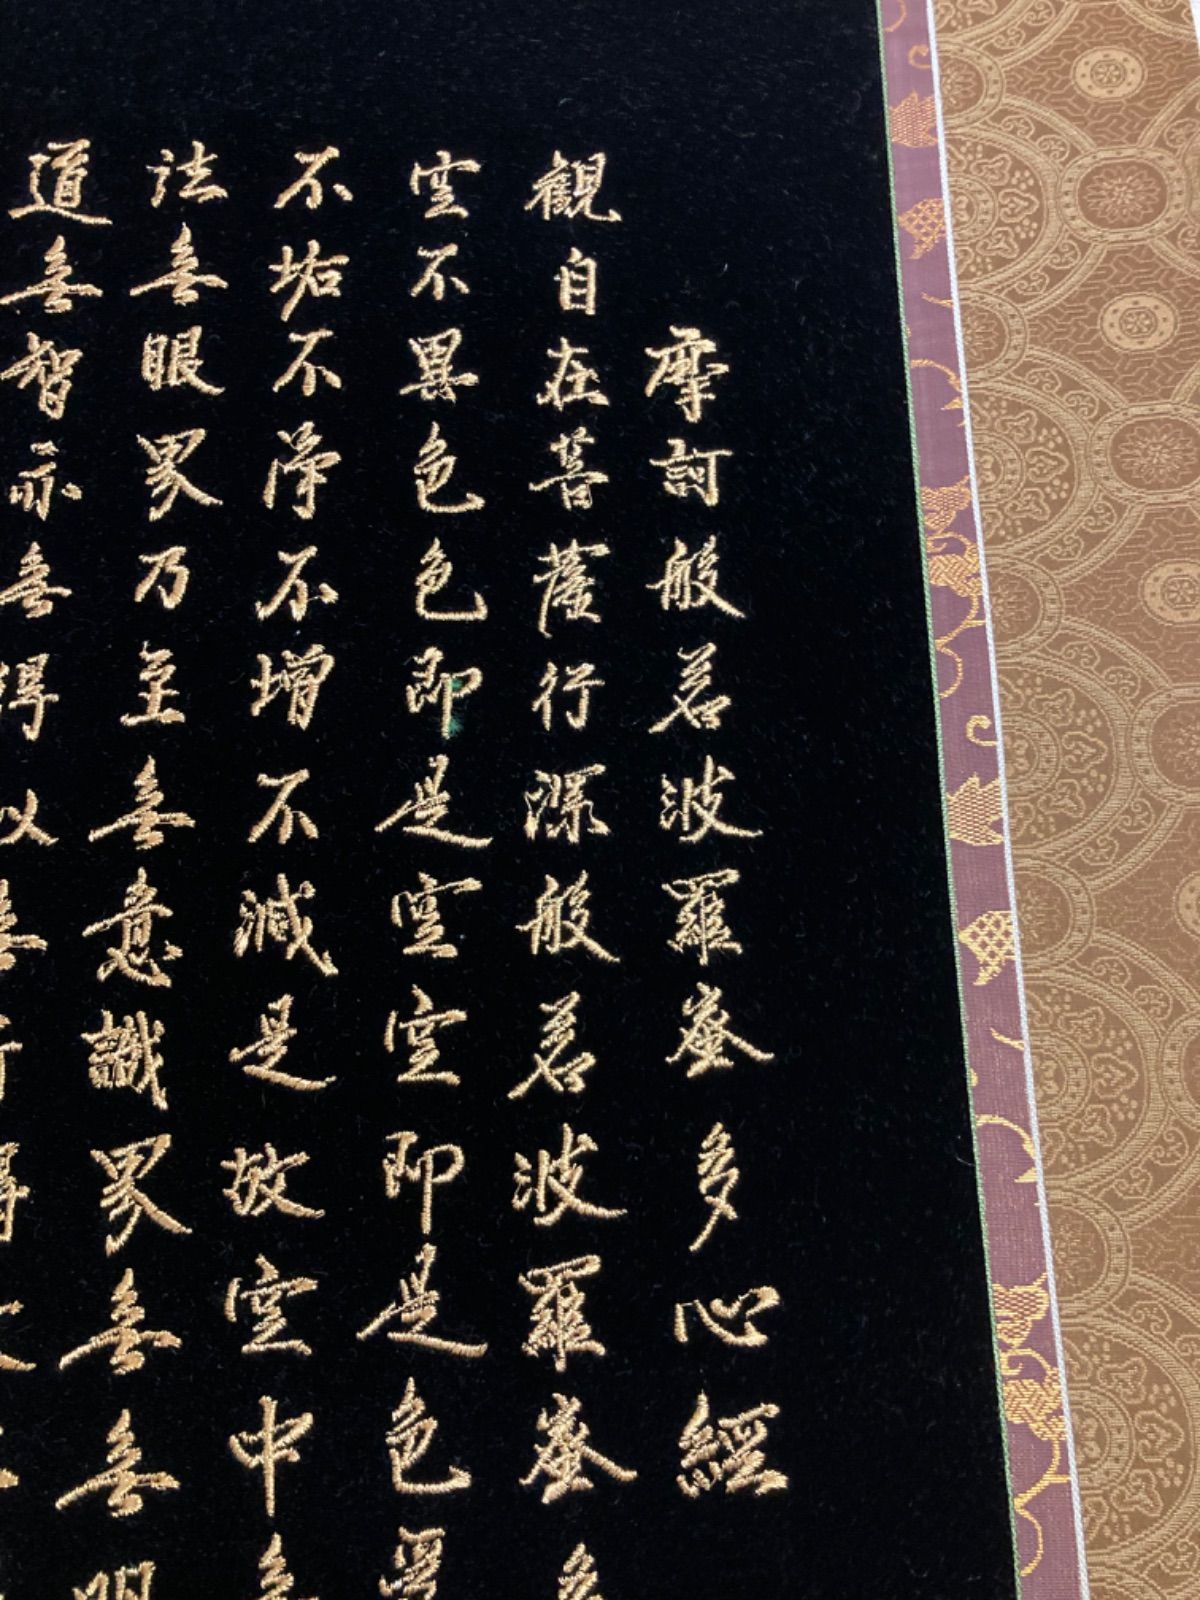 摩訶般若波羅蜜多心經
觀自在菩薩行深般若波羅蜜多
空不異色色即是空空即是色受
不垢不淨不增不減是故空中無
法無眼界乃至無意識界無無明
道無智亦無得以無所得故